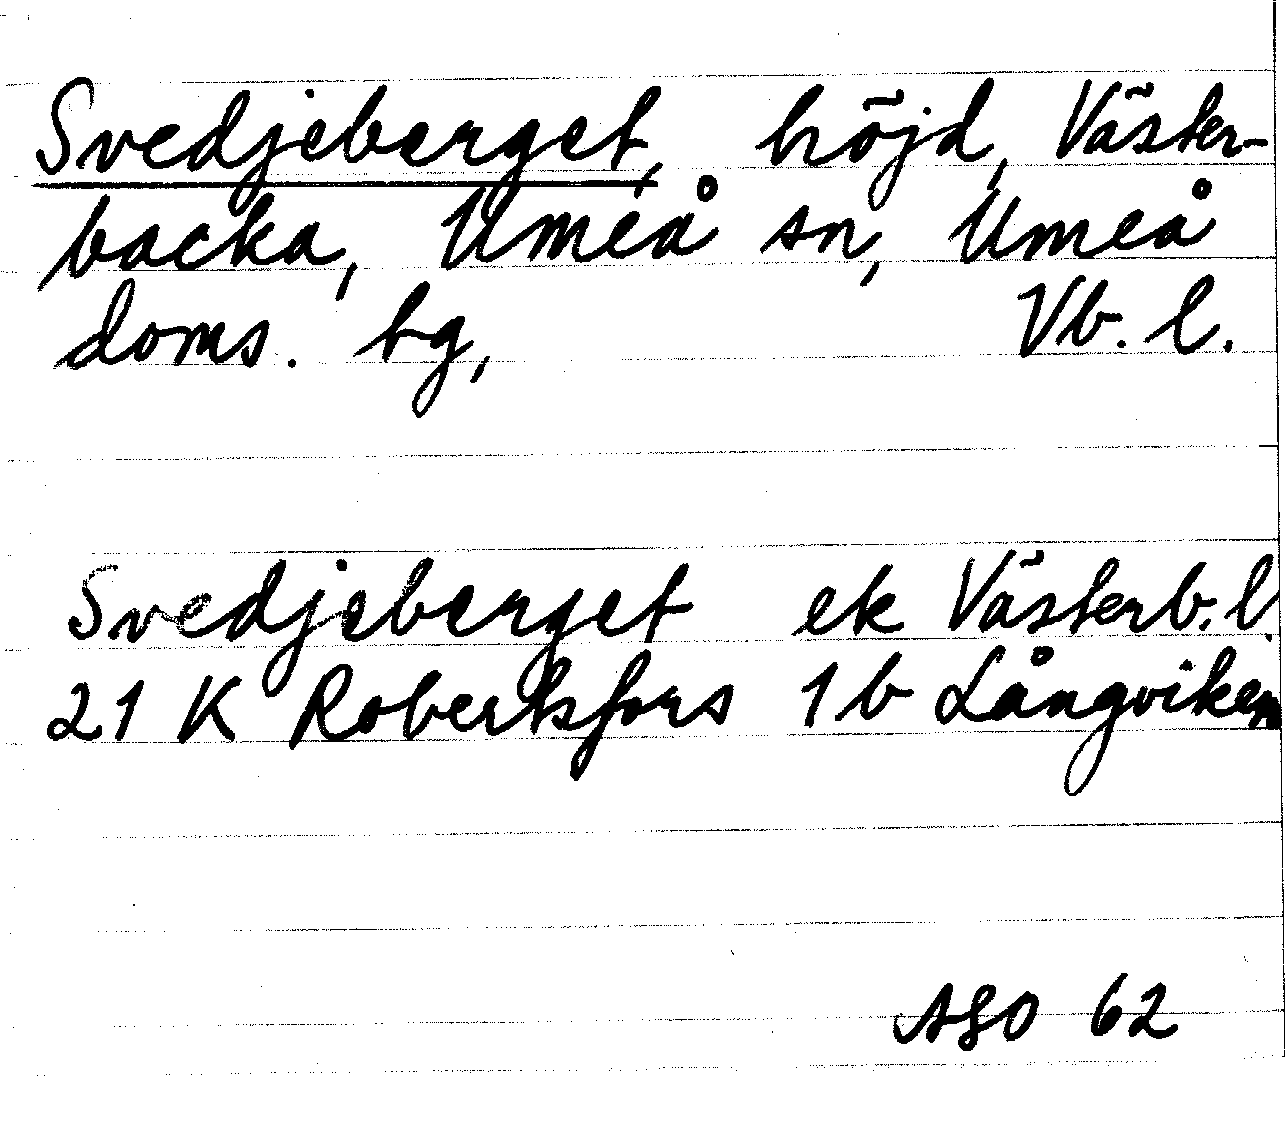 Svedjeberget, höjd, Väster-
backa, Umeå sn, Umeå
doms. bg, Vb. l.
Svedjeberget ek Västerb. l.
21 K Robertsfors 1 b Långviken
ASO 62